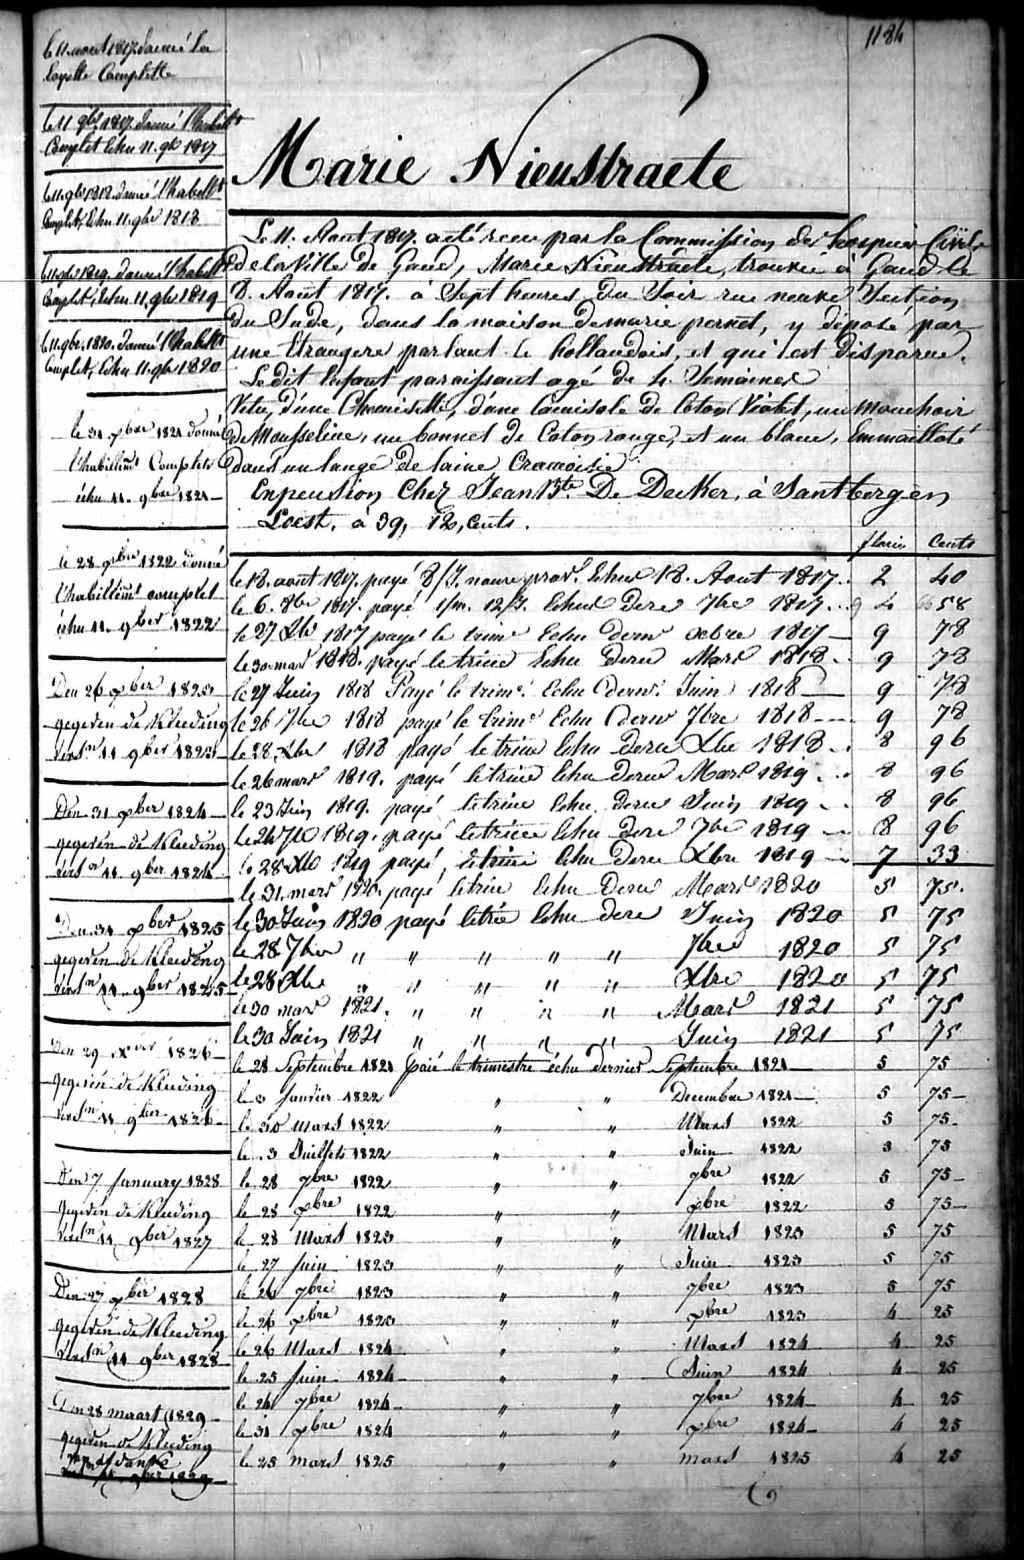 1184
le 11. aout 1817. donné La
layette Complette
le 11 9bre 1817. donné l'habillt
Complet Echu 11. 9bre 1817
le 11 9bre 1818. donné l'habillt
Complet, Echu 11. 9bre 1818
le 11 9bre 1819. donné l'habillt
Complet, Echu 11. 9bre 1819
le 11. 9bre. 1820. donné l'habillt
Complet, Echu 11. 9bre 1820
le 31 xbre 1821 donné
l'habillmt Complet
échu 11. 9bre 1821
le 28 xbre 1822 donné
l'habillmt complet
échu 11. 9ber 1822
Den 26 xber 1823
gegeven de Kleeding
verv.n 11 9ber 1823
Den 31 xber 1824
gegeven de Kleeding
verv.n 11. 9ber 1824
Den 31 xber 1825
gegeven de Kleeding
verv.n 11. 9ber 1825
Den 29 xber 1826
gegeven de Kleeding
verv.n 11 9ber 1826
Den 7 January 1828
gegeven de Kleeding
verv.n 11 9ber 1827
Den 27 xber 1828
gegeven de Kleeding
verv.n 11 9ber 1828
Den 28 maart 1829
gegeven de Kleeding
11 9ber 1829
Marie Nieustraete
Le 11. Aout 1817. a été reçue par la Commission des hospices Civils
de la Ville de Gand, Marie Nieustraete, trouvée à Gand le
8. Août 1817. à Sept heures du Soir rue neuve Section
du Sude, dans la maison de marie pernet, y déposé par
une Etrangere parlant le hollandois, et qui est disparue.
Le dit Enfant paroissant agé de 4 Semaines
Vetu, d'une Chemisette, d'une Camisole de Coton Violet, un Mouchoir
de Mousseline, un bonnet de Coton rouge, et un blanc, Emmailloté
dans un lange de laine Cramoisie
En pension Chez Jean Bte. De Decker, à Santbergen
Loest. à 39, 12, Cents.
florins Cents
le 18. aout 1817. payé 8/J. nourr. prov. Echus 18. Aout 1817 2 40
le 6. 8bre 1817. payé 1/m. 12/J. Echus dere 7bre 1817 4 58
le 27 Xbre 1817 payé le trime Echu dernr Xbre 1817 9 78
le 30 mars 1818. payé le trime Echu dere Mars 1818 9 78
le 27 Juin 1818 Payé le trime. Echu dernr. Juin 1818 9 78
le 26 7bre 1818 payé le trime Echu dernr 7bre 1818 9 78
le 28. Xbre 1818 payé le trime Echu dere Xbre 1818 8 96
le 26 mars 1819. payé le trime Echu dere Mars 1819 8 96
le 23 Juin 1819. payé le trime Echu dere Juin 1819 8 96
le 24 7bre 1819. payé le trime Echu dere 7bre 1819 8 96
le 28 Xbre 1819 payé, le trime Echu dere Xbre 1819 7 33
le 31. mars 1820. payé le trim Echu dere Mars 1820 5 75.
le 30 Juin 1820 payé le trim Echu dere Juin 1820 5 75
le 28 7bre " " " " " 7bre 1820 5 75
le 28 Xbre " " " " " Xbre 1820 5 75
le 30 mars 1821. " " " " Mars 1821 5 75
le 30 Juin 1821 " " " " Juin 1821 5 75
le 28 Septembre 1821 Paié le trimestre échu dernier Septembre 1821 5 75
le 3 Janvier 1822 " " Decembre 1821 5 75
le 30 Mars 1822 " " Mars 1822 5 75
le 3 Juillet 1822 " " Juin 1822 5 75
le 28 7bre 1822 " " 7bre 1822 5 75
le 28 xbre 1822 " " xbre 1822 5 75
le 28 Mars 1823 " " Mars 1823 5 75
le 27 Juin 1823 " " Juin 1823 5 75
le 26 7bre 1823 " " 7bre 1823 5 75
le 26 xbre 1823 " " xbre 1823 4 25
le 26 Mars 1824 " " Mars 1824 4 25
le 25 Juin 1824 " " Juin 1824 4 25
le 24 7bre 1824 " " 7bre 1824 4 25
le 31 xbre 1824 " " xbre 1824 4 25
le 25 mars 1825 " " mars 1825 4 25